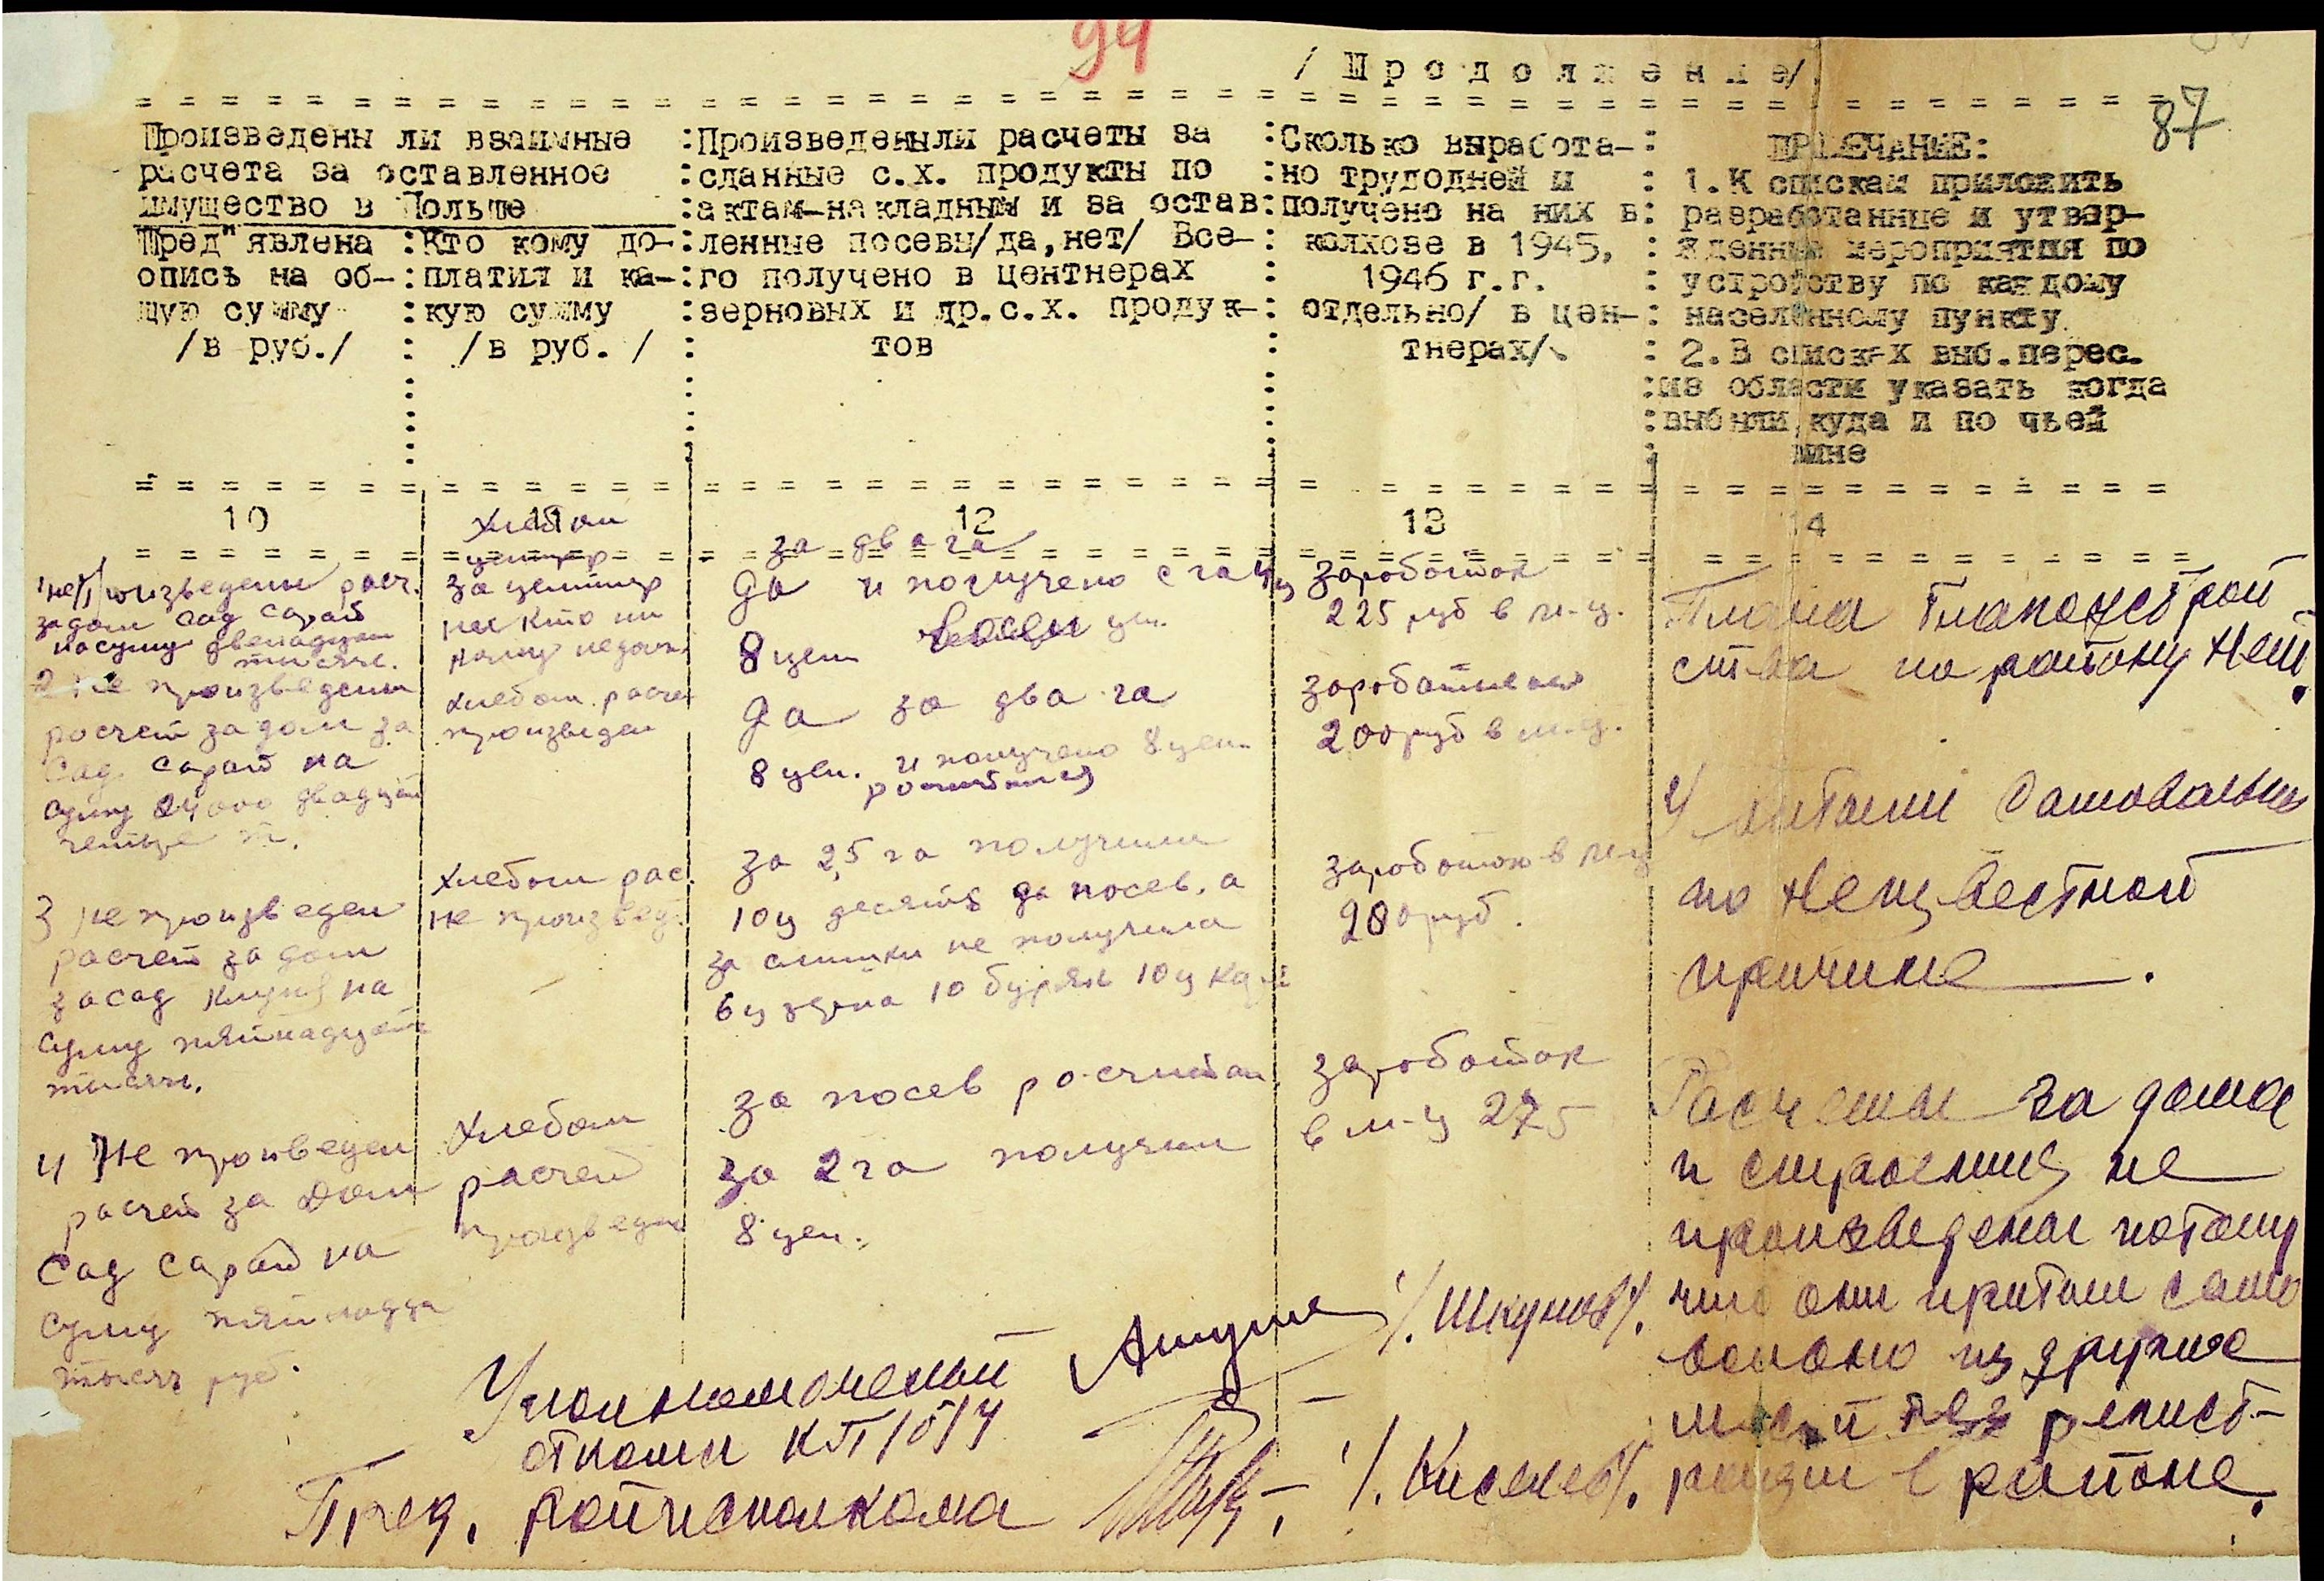 94
/Продолжение/
87
Произведены ли взаимные
расчета за оставленное
имущество в Польше
Пред"явлена
опись на об-
щую сумму
/в руб./
Кто кому до-
платил и ка-
кую сумму
/в руб. /
Произведены ли расчеты за
сданные с.х. продукты по
актам-накладным и за остав
ленные посевы/да,нет/ Все-
го получено в центнерах
зерновых и др.с.х. продук-
тов
Сколько выработа-
но трудодней и
получено на них в
колхозе в 1945,
1946 г.г.
отдельно/ в цен-
тнерах/
ПРИМЕЧАНИЕ:
1.К спискам приложить
разработанные и утвер-
жденные мероприятия по
устройству по каждому
населенному пункту
2.В списках выб.перес.
из области указать когда
выбыли,куда и по чьей
вине
10
11
12
13
14
1 не произведены расч.
за дом сад сарай
на суму двенадцат
тысяч.
2 не произведены
росчет за дом за
Сад. Сарай на
суму 24000 двадцат
четыре т.
3 не произведен
расчет за дом
за сад клуня на
суму пятнадцат
тысяч.
4 Не произведен
расчет за Дом
Сад Сарай на
суму пятнадца
тысяч руб.
Хлебом
центнер
за центнер
ни кто ни
кому недолж.
хлебом. расчет
произведен
Хлебом рас.
не произвед.
Хлебом
расчет
произведен
за два га
Да и получено с га 4ц
8 цен
Да за два га
8 цен. и получено 8 цен.
росчитался
за 2,5 га получила
10ц десять за посев. а
не получила
6ц зерна 10 буряк 10ц
за посев росчитан
за 2 га получил
8 цен.
Заработок
225 руб в м-ц.
заработок
200 руб в м-ц.
заработок в м-ц
280 руб.
заработок
в м-ц 275
Плана
ства по району Нет.
самовольно
по неизвестной
причине.
Расчеты за дома
и строения не
произведены потому
что они
вольно из других
мест и без регист-
рации в районе.
Уполномоченый /.Шкунов/.
Пред. Райисполкома /.Киселев/.